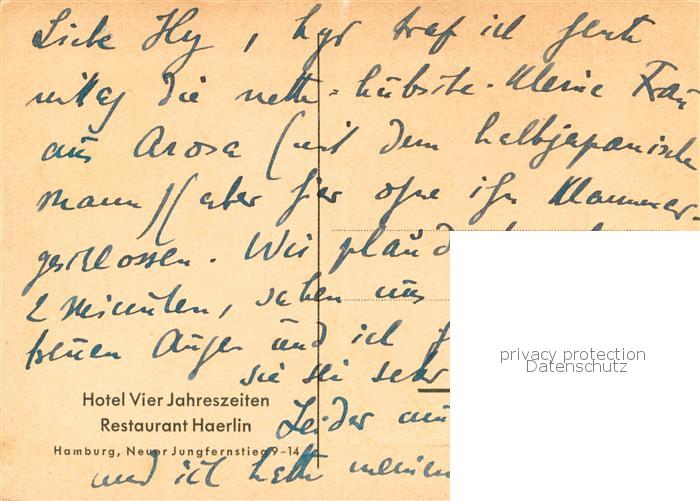 Liebe Hy, hier traf ich heute
mittag die nette-hübsche-kleine Frau
aus Arosa (mit dem halbjapanischen
Mann) (aber hier ohne ihn Klammer-
geschlossen. Wir plaud
2 Minuten, sahen uns
treuen Augen und ich
sie sei sehr
Leider
und ich hatte meinen
Hotel Vier Jahreszeiten
Restaurant Haerlin
Hamburg, Neuer Jungfernstieg 9-14
privacy protection
Datenschutz